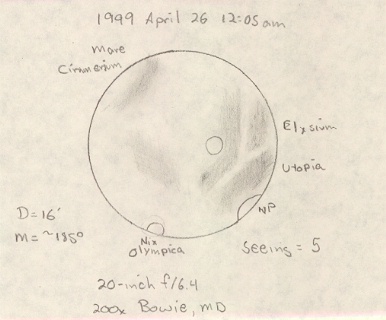 1999 April 26 12:05am
mare
Cimmerium
Elysium
Utopia
NP
D=16"
m= ~185°
Nix
Olympica
Seeing = 5
20-inch f/6.4
200x Bowie, MD